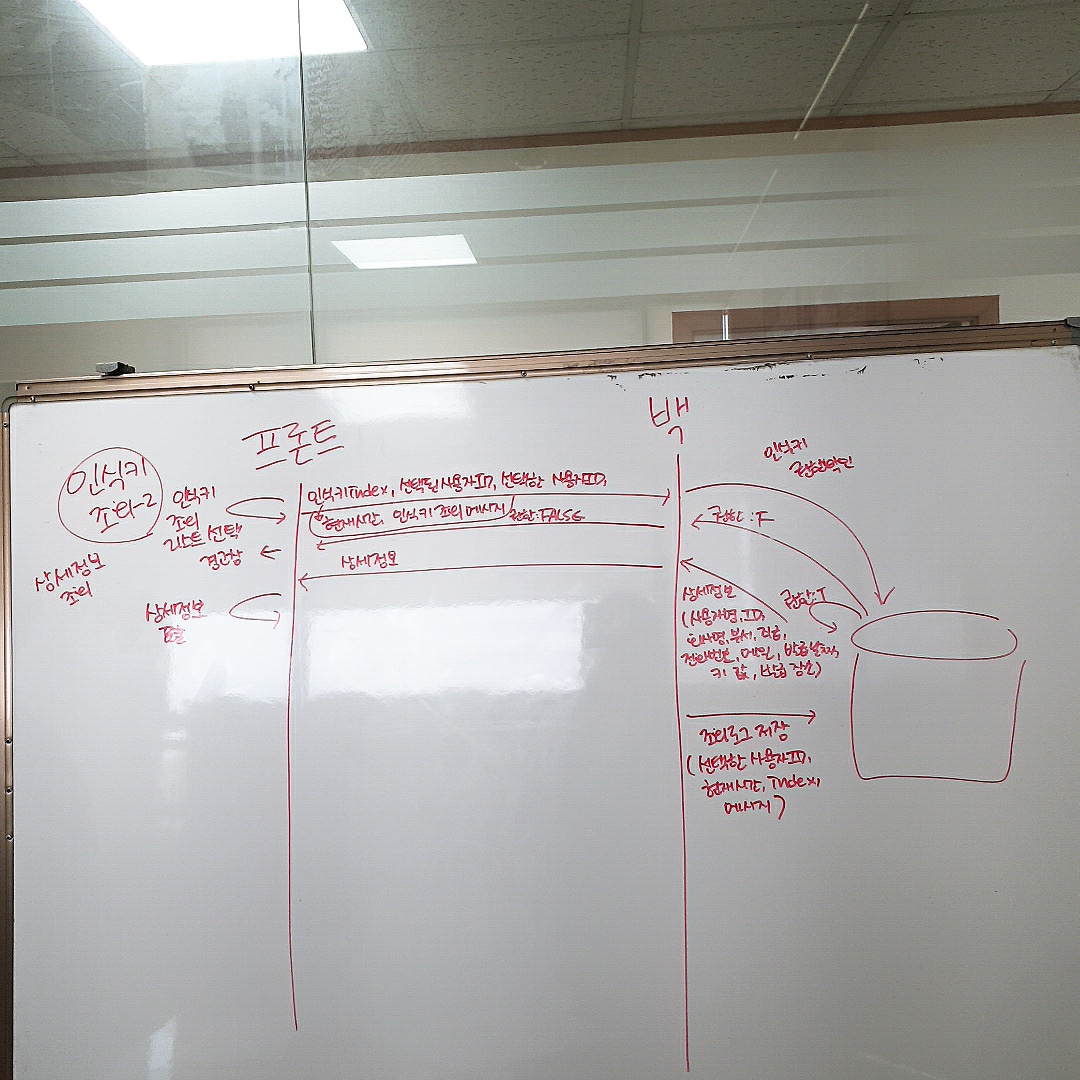 인식키
조회-2
상세정보
조회
프론트
백
인식키
조회
리스트 선택
경고창
상세정보
표출
인식키Index, 선택된 사용자ID, 선택한 사용자ID,
현재시간, 인식키 조회 메시지
권한:FALSE
상세정보
인식키
권한확인
권한:F
권한:T
상세정보
(사용자명, ID,
회사명, 부서, 직급,
전화번호, 메일, 발급날짜,
키 값, 발급 장소)
조회로그 저장
(선택한 사용자ID,
현재시간, Index,
메시지)